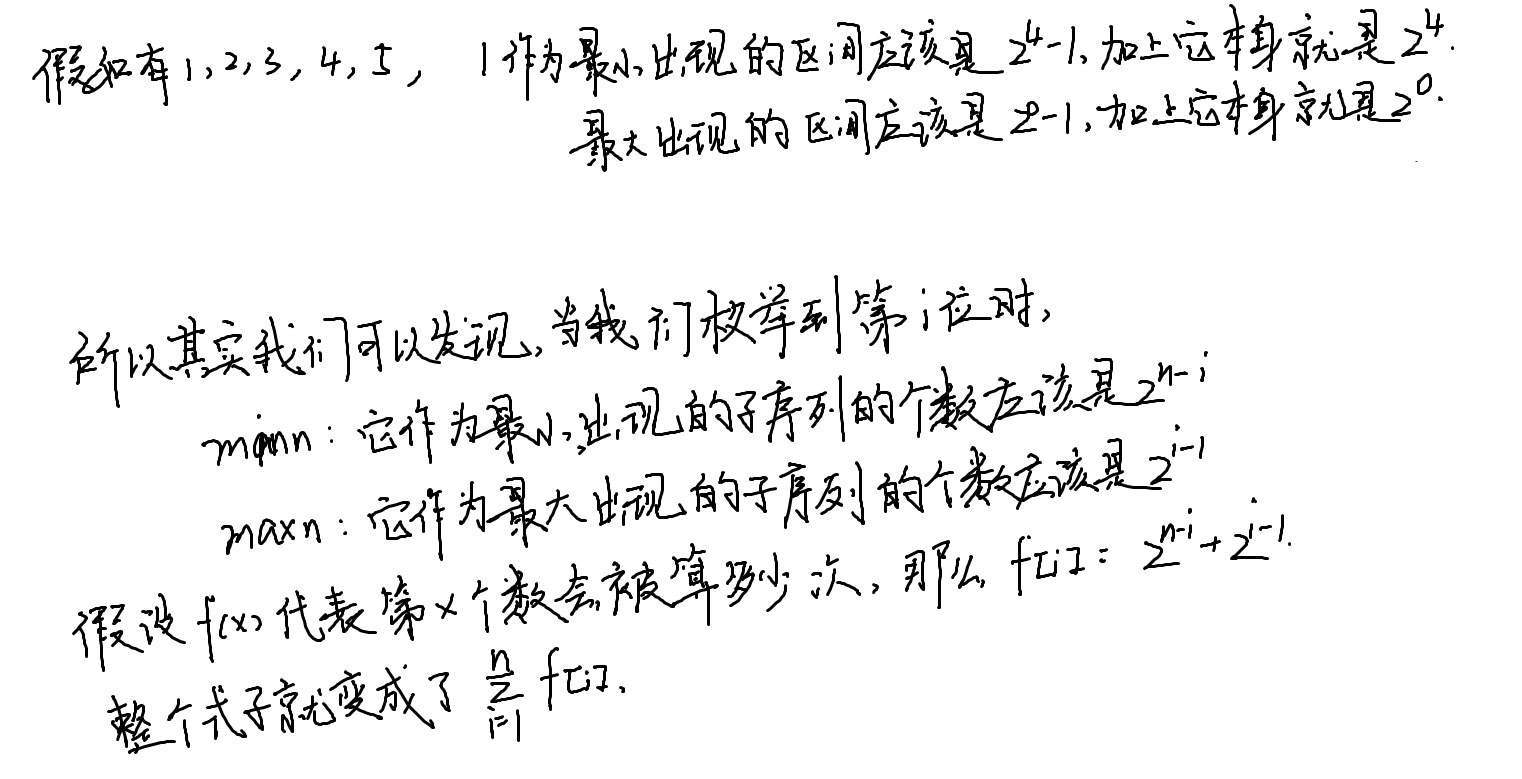 假如有1,2,3,4,5, 1作为最小出现的区间应该是2^4-1,加上它本身就是2^4.
最大出现的区间应该是2^0-1,加上它本身就是2^0.
所以其实我们可以发现,当我们枚举到第i位时,
minn:它作为最小出现的子序列的个数应该是2^{n-i}
maxn:它作为最大出现的子序列的个数应该是2^{i-1}
假设f(x)代表第x个数会被算多少次,那么f[i]=2^{n-i}+2^{i-1}.
整个式子就变成了\sum_{i=1}^{n} f[i].